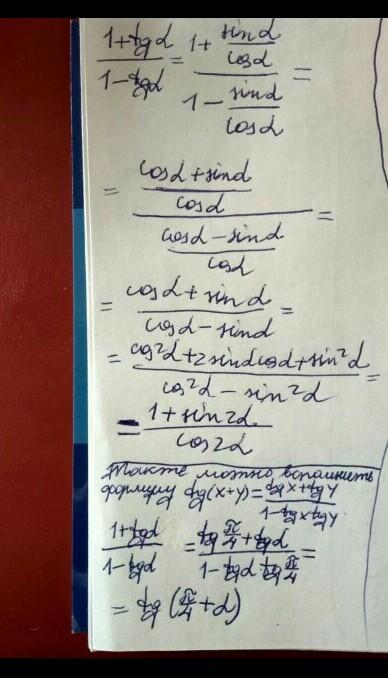 (1+tgα)/(1-tgα) = (1+ sinα/cosα)/(1- sinα/cosα) =
= ((cosα+sinα)/cosα)/((cosα-sinα)/cosα) =
= (cosα+sinα)/(cosα-sinα) =
= (cos²α+2sinαcosα+sin²α)/(cos²α-sin²α) =
= (1+sin2α)/cos2α
Также можно вспомнить
формулу tg(x+y)=(tgx+tgy)/(1-tgxtgy)
(1+tgα)/(1-tgα) = (tg π/4+tgα)/(1-tgα tg π/4) =
= tg(π/4+α)